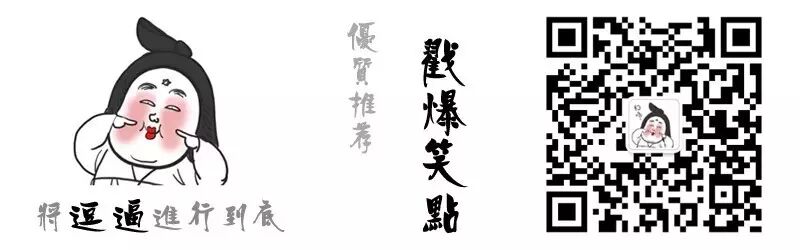 將逗逼進行到底
優質推荐
戳爆笑點